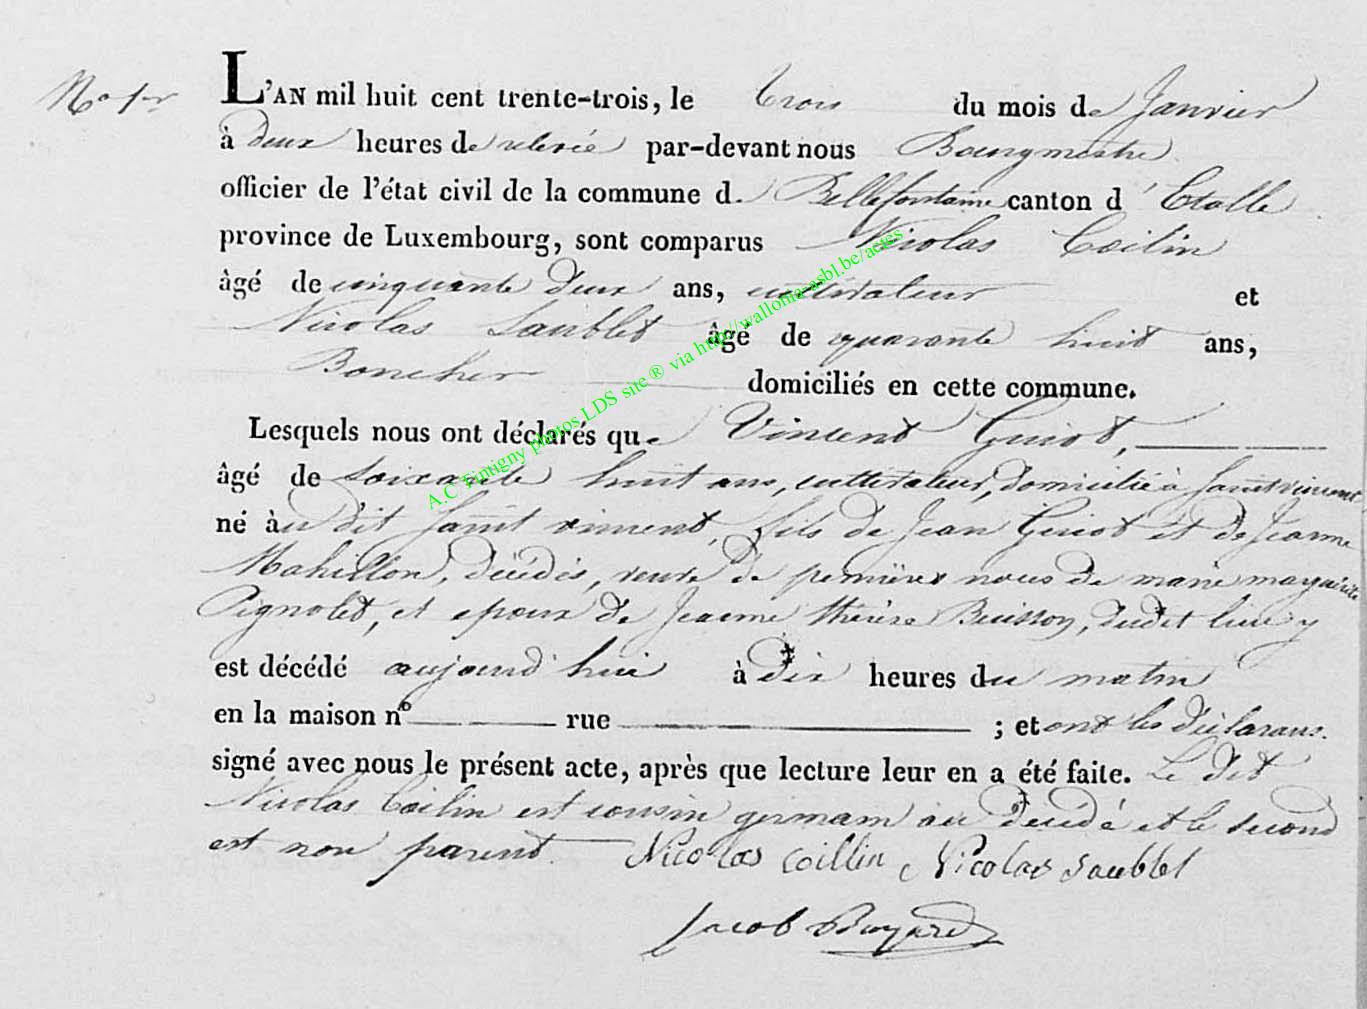 No 1er L'AN mil huit cent trente-trois, le trois du mois de Janvier
à deux heures de relevée par-devant nous Bourgmestre
officier de l'état civil de la commune d. Bellefontaine canton d' Etalle
province de Luxembourg, sont comparus Nicolas Coilin
àgé de cinquante deux ans, cultivateur et
Nicolas Saublet âgé de quarante huit ans,
Boncher domiciliés en cette commune.
Lesquels nous ont déclarés que Vincent Guiot,
âgé de soixante huit ans, cultivateur, domicilié à Saint vincent
né àu dit Saint vincent, fils de Jean Guiot et de Jeanne
Mahillon, décédés, veuve de premières nous de marie marguerite
Pignolet, et epoux de Jeanne thérèse Buisson, dudit lieu y
est décédé aujourd'hui à dix heures du matin
en la maison no rue ; et ont les déclarans.
signé avec nous le présent acte, après que lecture leur en a été faite. Le dit
Nicolas Coilin est cousin germain au décédé et le second
est non parent. Nicolas Coillin Nicolas Saublet
Jacob
A.C Tintigny photos LDS site ® via http://wallonia-asbl.be/actes